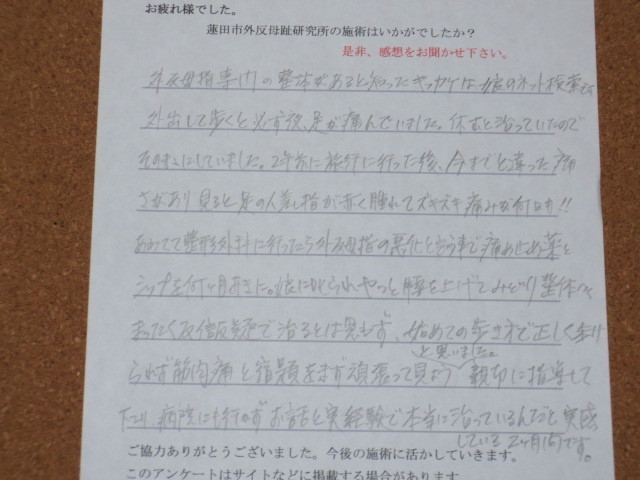 お疲れ様でした。
蓮田市外反母趾研究所の施術はいかがでしたか？
是非、感想をお聞かせ下さい。
外反母指専門の整体があると知ったキッカケは娘のネット検索です
外出して歩くと必ず夜、足が痛んでいました。休むと治っていたので
そのままにしていました。2年前に旅行に行った後、今までと違った痛
さがあり見ると足の人差し指が赤く腫れてズキズキ痛みが何日も!!
あわてて整形外科に行ったら外反母指の悪化と言う事で痛め止め薬と
シップを何ヶ月あきに。娘に叱られやっと腰を上げてみどり整体へ
まったく反信反疑で治るとは思えず、始めての歩き方で正しく歩け
られず筋肉痛と宿題をまず頑張って見よう と思いました。親切に指導して
下さり病院にも行かずお話と実経験で本当に治っているんだと実感
している2ヶ月(6)です。
ご協力ありがとうございました。今後の施術に活かしていきます。
このアンケートはサイトなどに掲載する場合があります